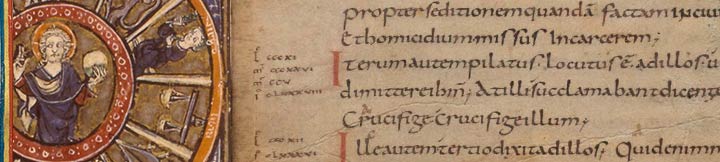 propter seditionem quandā factam in ciui
Et homicidium missus In carcerem;
Iterum autem pilatus locutus ē ad illos u
dimittere ihm̄; At illi succlamabant dicente
Crucifige Crucifige illum;
Ille autem tertio dixit ad illos; Quid enim m